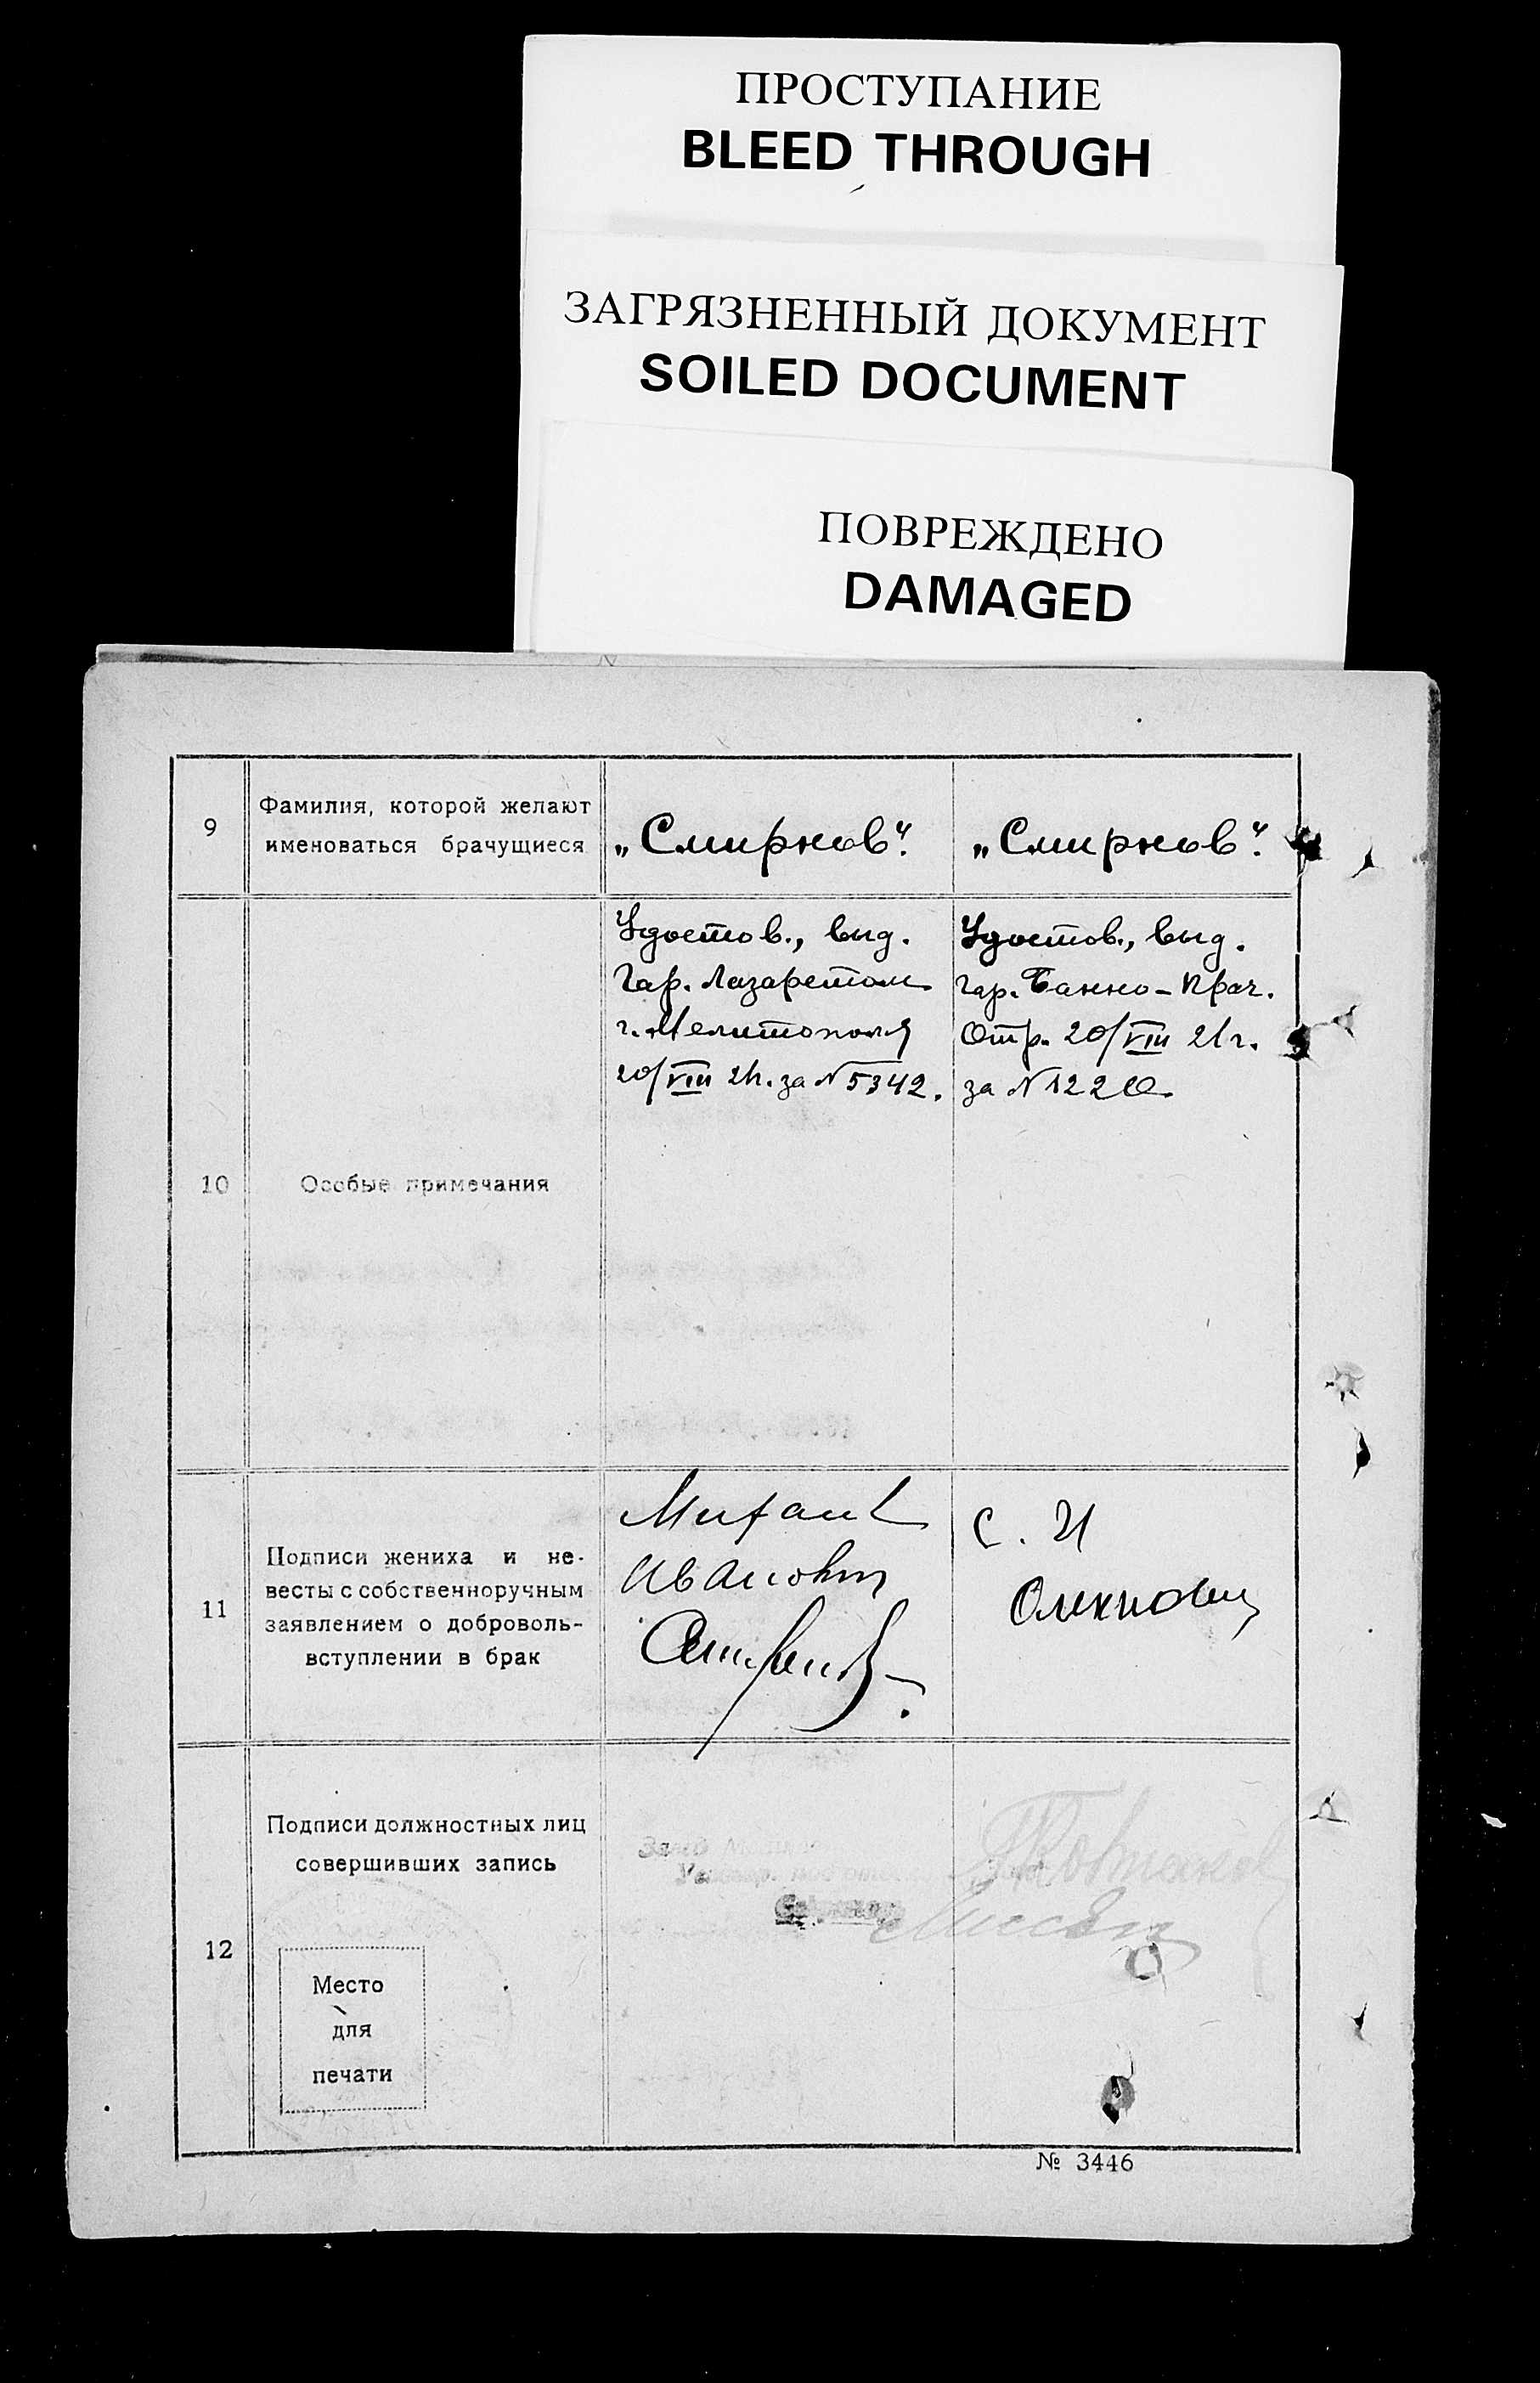 ПРОСТУПАНИЕ
BLEED THROUGH
ЗАГРЯЗНЕННЫЙ ДОКУМЕНТ
SOILED DOCUMENT
ПОВРЕЖДЕНО
DAMAGED
9
Фамилия, которой желают
именоваться брачущиеся
„Смирнов“.
„Смирнов“.
10
Особые примечания
Удостов., выд.
Гар. Лазаретом
г. Мелитополя
20/VIII 21г. за № 5342.
Удостов., выд.
Гар. Банно-Прач.
Отр. 20/VIII 21г.
за № 1220.
11
Подписи жениха и не-
весты с собственноручным
заявлением о доброволь-
вступлении в брак
Михаил
Иванович
Смирнов
С. И
12
Подписи должностных лиц
совершивших запись
Место
для
печати
№ 3446